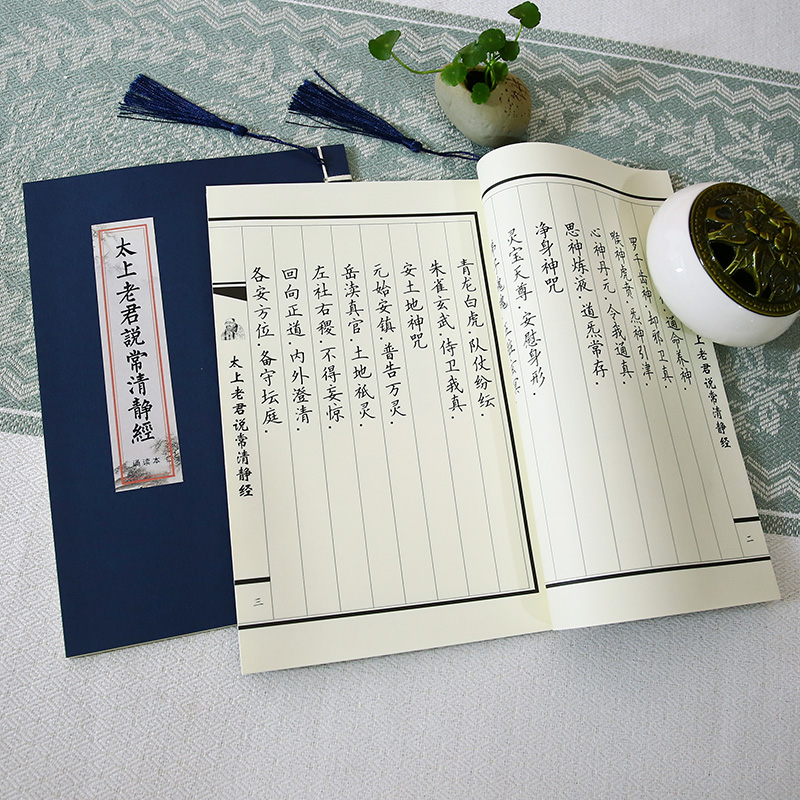 太上老君説常清静經
诵读本
太上老君说常清静经
二
命养神
罗千齿神·却邪卫真
喉神虎贲·炁神引津
心神丹元·令我通真
思神炼液·道炁常存·
净身神咒
灵宝天尊·安慰身形·
弟子魂魄·五脏玄冥
青龙白虎·队仗纷纭·
朱雀玄武·侍卫我真·
安土地神咒
元始安镇·普告万灵·
岳渎真官·土地祇灵·
左社右稷·不得妄惊·
回向正道·内外澄清·
各安方位·备守坛庭·
太上老君说常清静经
三